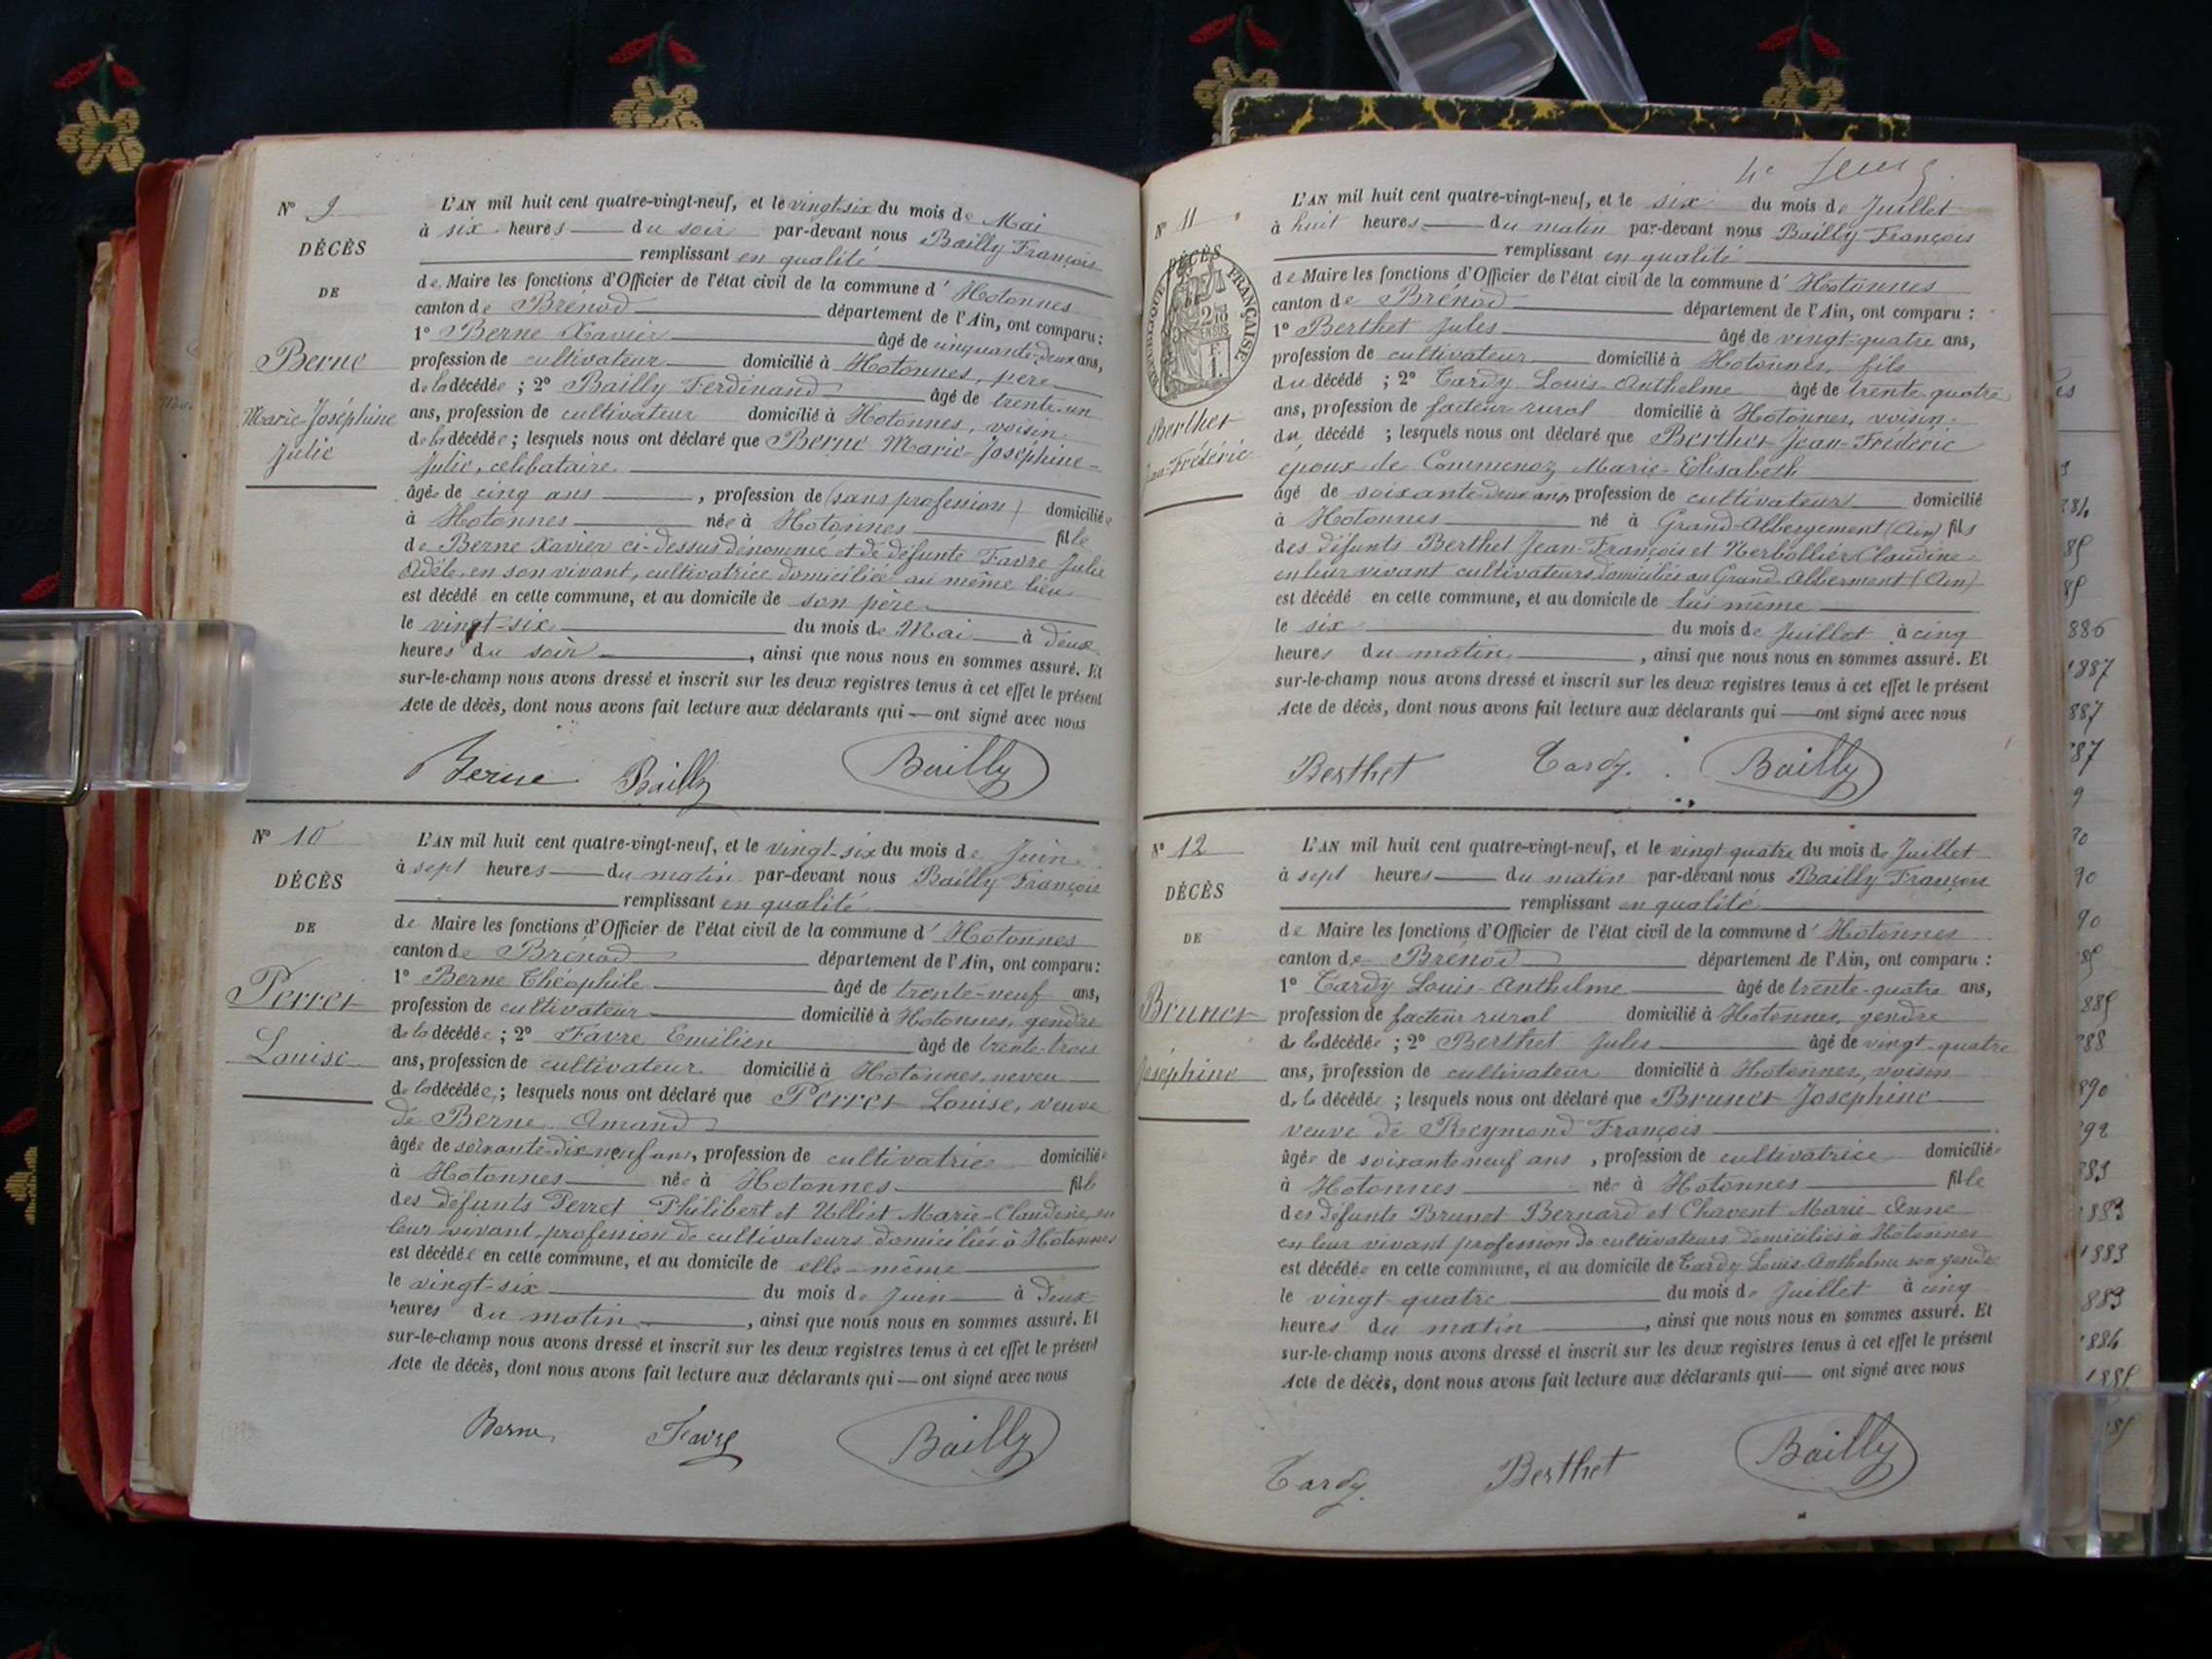 N° 9
DÉCÈS
DE
Berne
Marie-Joséphine
Julie
L'AN mil huit cent quatre-vingt-neuf, et le vingt-six du mois de Mai
à six heures du soir par-devant nous Bailly François
remplissant en qualité
de Maire les fonctions d'Officier de l'état civil de la commune d' Hotonnes
canton de Brénod département de l'Ain, ont comparu :
1° Berne Xavier âgé de cinquante-deux ans,
profession de cultivateur domicilié à Hotonnes, père
de la décédée ; 2° Bailly Ferdinand âgé de trente-un
ans, profession de cultivateur domicilié à Hotonnes, voisin
de la décédée ; lesquels nous ont déclaré que Berne Marie-Joséphine-
Julie, célibataire
âgée de cinq ans , profession de (sans profession) domiciliée
à Hotonnes née à Hotonnes fille
de Berne Xavier ci-dessus dénommé et de défunte Favre Julie
Adèle, en son vivant, cultivatrice domiciliée au même lieu
est décédé en cette commune, et au domicile de son père
le vingt-six du mois de Mai à deux
heures du soir , ainsi que nous nous en sommes assuré. Et
sur-le-champ nous avons dressé et inscrit sur les deux registres tenus à cet effet le présent
Acte de décès, dont nous avons fait lecture aux déclarants qui — ont signé avec nous
Berne Bailly Bailly
N° 10
DÉCÈS
DE
Perret
Louise
L'AN mil huit cent quatre-vingt-neuf, et le vingt-six du mois de Juin
à sept heures du matin par-devant nous Bailly François
remplissant en qualité
de Maire les fonctions d'Officier de l'état civil de la commune d' Hotonnes
canton de Brénod département de l'Ain, ont comparu :
1° Berne Théophile âgé de trente-neuf ans,
profession de cultivateur domicilié à Hotonnes, gendre
de la décédée ; 2° Favre Emilien âgé de trente-trois
ans, profession de cultivateur domicilié à Hotonnes, neveu
de la décédée ; lesquels nous ont déclaré que Perret Louise, veuve
de Berne Amand
âgée de soixante-dix-neuf ans, profession de cultivatrice domiciliée
à Hotonnes née à Hotonnes fille
des défunts Perret Philibert et Ulliet Marie-Claudine, en
leur vivant, profession de cultivateurs domiciliés à Hotonnes
est décédée en cette commune, et au domicile de elle-même
le vingt-six du mois de Juin à deux
heures du matin , ainsi que nous nous en sommes assuré. Et
sur-le-champ nous avons dressé et inscrit sur les deux registres tenus à cet effet le présent
Acte de décès, dont nous avons fait lecture aux déclarants qui — ont signé avec nous
Berne Favre Bailly
N° 11
DÉCÈS
RÉPUBLIQUE FRANÇAISE
Berthet
Jean-Frédéric
L'AN mil huit cent quatre-vingt-neuf, et le six du mois de Juillet
à huit heures du matin par-devant nous Bailly François
remplissant en qualité
de Maire les fonctions d'Officier de l'état civil de la commune d' Hotonnes
canton de Brénod département de l'Ain, ont comparu :
1° Berthet Jules âgé de vingt-quatre ans,
profession de cultivateur domicilié à Hotonnes, fils
du décédé ; 2° Tardy Louis-Anthelme âgé de trente-quatre
ans, profession de facteur rural domicilié à Hotonnes, voisin
du décédé ; lesquels nous ont déclaré que Berthet Jean-Frédéric
époux de Commenoz Marie-Elisabeth
âgé de soixante-deux ans, profession de cultivateur domicilié
à Hotonnes né à Grand-Abbergement (Ain) fils
des défunts Berthet Jean-François et Nerbollier Claudine
en leur vivant cultivateurs domiciliés au Grand-Abberment (Ain)
est décédé en cette commune, et au domicile de lui même
le six du mois de Juillet à cinq
heures du matin , ainsi que nous nous en sommes assuré. Et
sur-le-champ nous avons dressé et inscrit sur les deux registres tenus à cet effet le présent
Acte de décès, dont nous avons fait lecture aux déclarants qui — ont signé avec nous
Berthet Tardy. Bailly
N° 12
DÉCÈS
DE
Brunet
Joséphine
L'AN mil huit cent quatre-vingt-neuf, et le vingt-quatre du mois de Juillet
à sept heures du matin par-devant nous Bailly François
remplissant en qualité
de Maire les fonctions d'Officier de l'état civil de la commune d' Hotonnes
canton de Brénod département de l'Ain, ont comparu :
1° Tardy Louis-Anthelme âgé de trente-quatre ans,
profession de facteur rural domicilié à Hotonnes, gendre
de la décédée ; 2° Berthet Jules âgé de vingt-quatre
ans, profession de cultivateur domicilié à Hotonnes, voisin
de la décédée ; lesquels nous ont déclaré que Brunet Joséphine
veuve de Reymond François
âgée de soixante neuf ans , profession de cultivatrice domiciliée
à Hotonnes née à Hotonnes fille
des défunts Brunet Bernard et Chavent Marie-Anne
en leur vivant profession de cultivateurs domiciliés à Hotonnes
est décédée en cette commune, et au domicile de Tardy Louis-Anthelme son gendre
le vingt-quatre du mois de Juillet à cinq
heures du matin , ainsi que nous nous en sommes assuré. Et
sur-le-champ nous avons dressé et inscrit sur les deux registres tenus à cet effet le présent
Acte de décès, dont nous avons fait lecture aux déclarants qui — ont signé avec nous
Tardy. Berthet Bailly